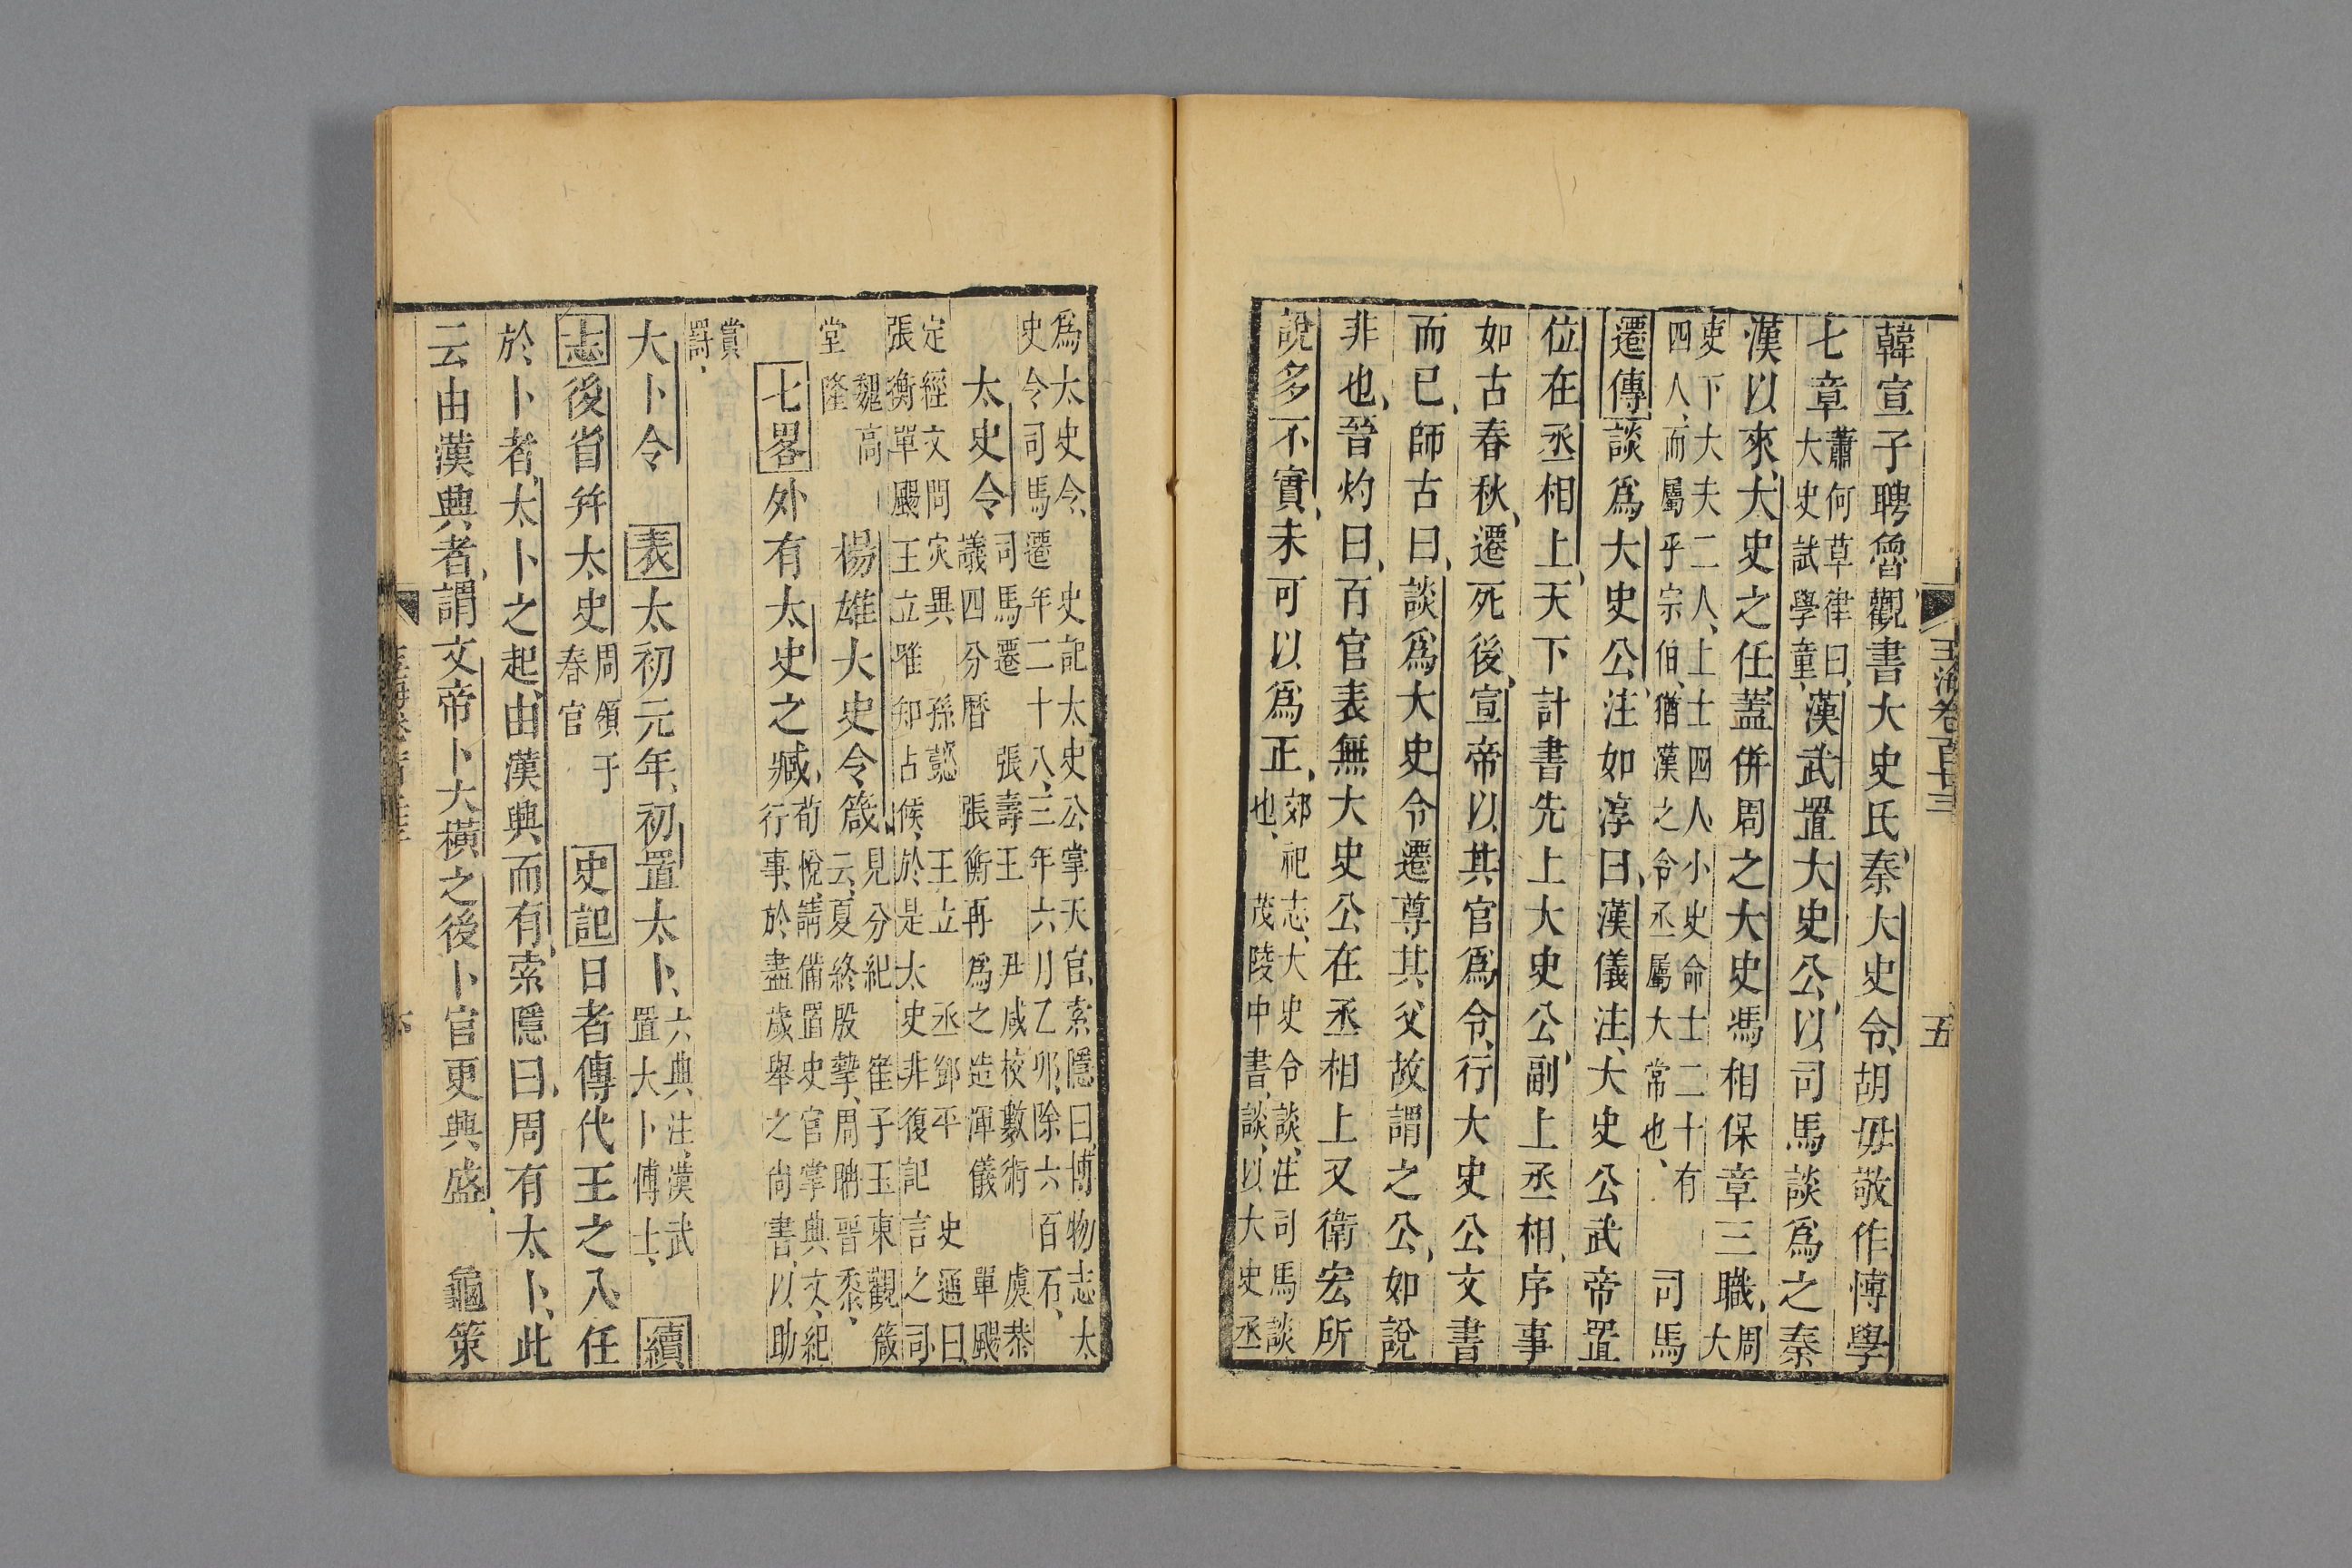 玉海卷百廿三 五
韓宣子聘魯觀書大史氏秦大史令胡毋敬作愽學
七章蕭何草律曰大史試學童漢武置大史公以司馬談爲之秦
漢以來大史之任蓋併周之大史馮相保章三職周大
史下大夫二人上士四人小史命士二十有四人而屬乎宗伯猶漢之令丞屬大常也 司馬
遷傳談爲大史公注如淳曰漢儀注大史公武帝置
位在丞相上天下計書先上大史公副上丞相序事
如古春秋遷死後宣帝以其官爲令行大史公文書
而已師古曰談爲大史令遷尊其父故謂之公如說
非也晉灼曰百官表無大史公在丞相上又衛宏所
說多不實未可以爲正也郊祀志大史令談注司馬談茂陵中書談以大史丞
爲太史令 史記太史公掌天官索隱曰博物志太
史令司馬遷年二十八三年六月乙卯除六百石
太史令司馬遷 張壽王 尹咸校數術 虞恭
議四分曆 張衡再爲之造渾儀 單颺
定經文問灾異 孫懿 王立 丞鄧平 史遷曰
張衡單颺王立唯知占候於是太史非復記言之司
魏高堂隆 楊雄大史令箴見分紀 崔子玉東觀箴云夏終殷摯周聃晉黍
七畧外有太史之臧荀悅請備置史官掌典文紀行事於盡歲舉之尚書以助
賞罰
大卜令 表太初元年初置太卜六典注漢武置大卜博士 續
志後省并太史周領于春官 史記日者傳代王之入任
於卜者太卜之起由漢興而有索隱曰周有太卜此
云由漢興者謂文帝卜大橫之後卜官更興盛 龜策